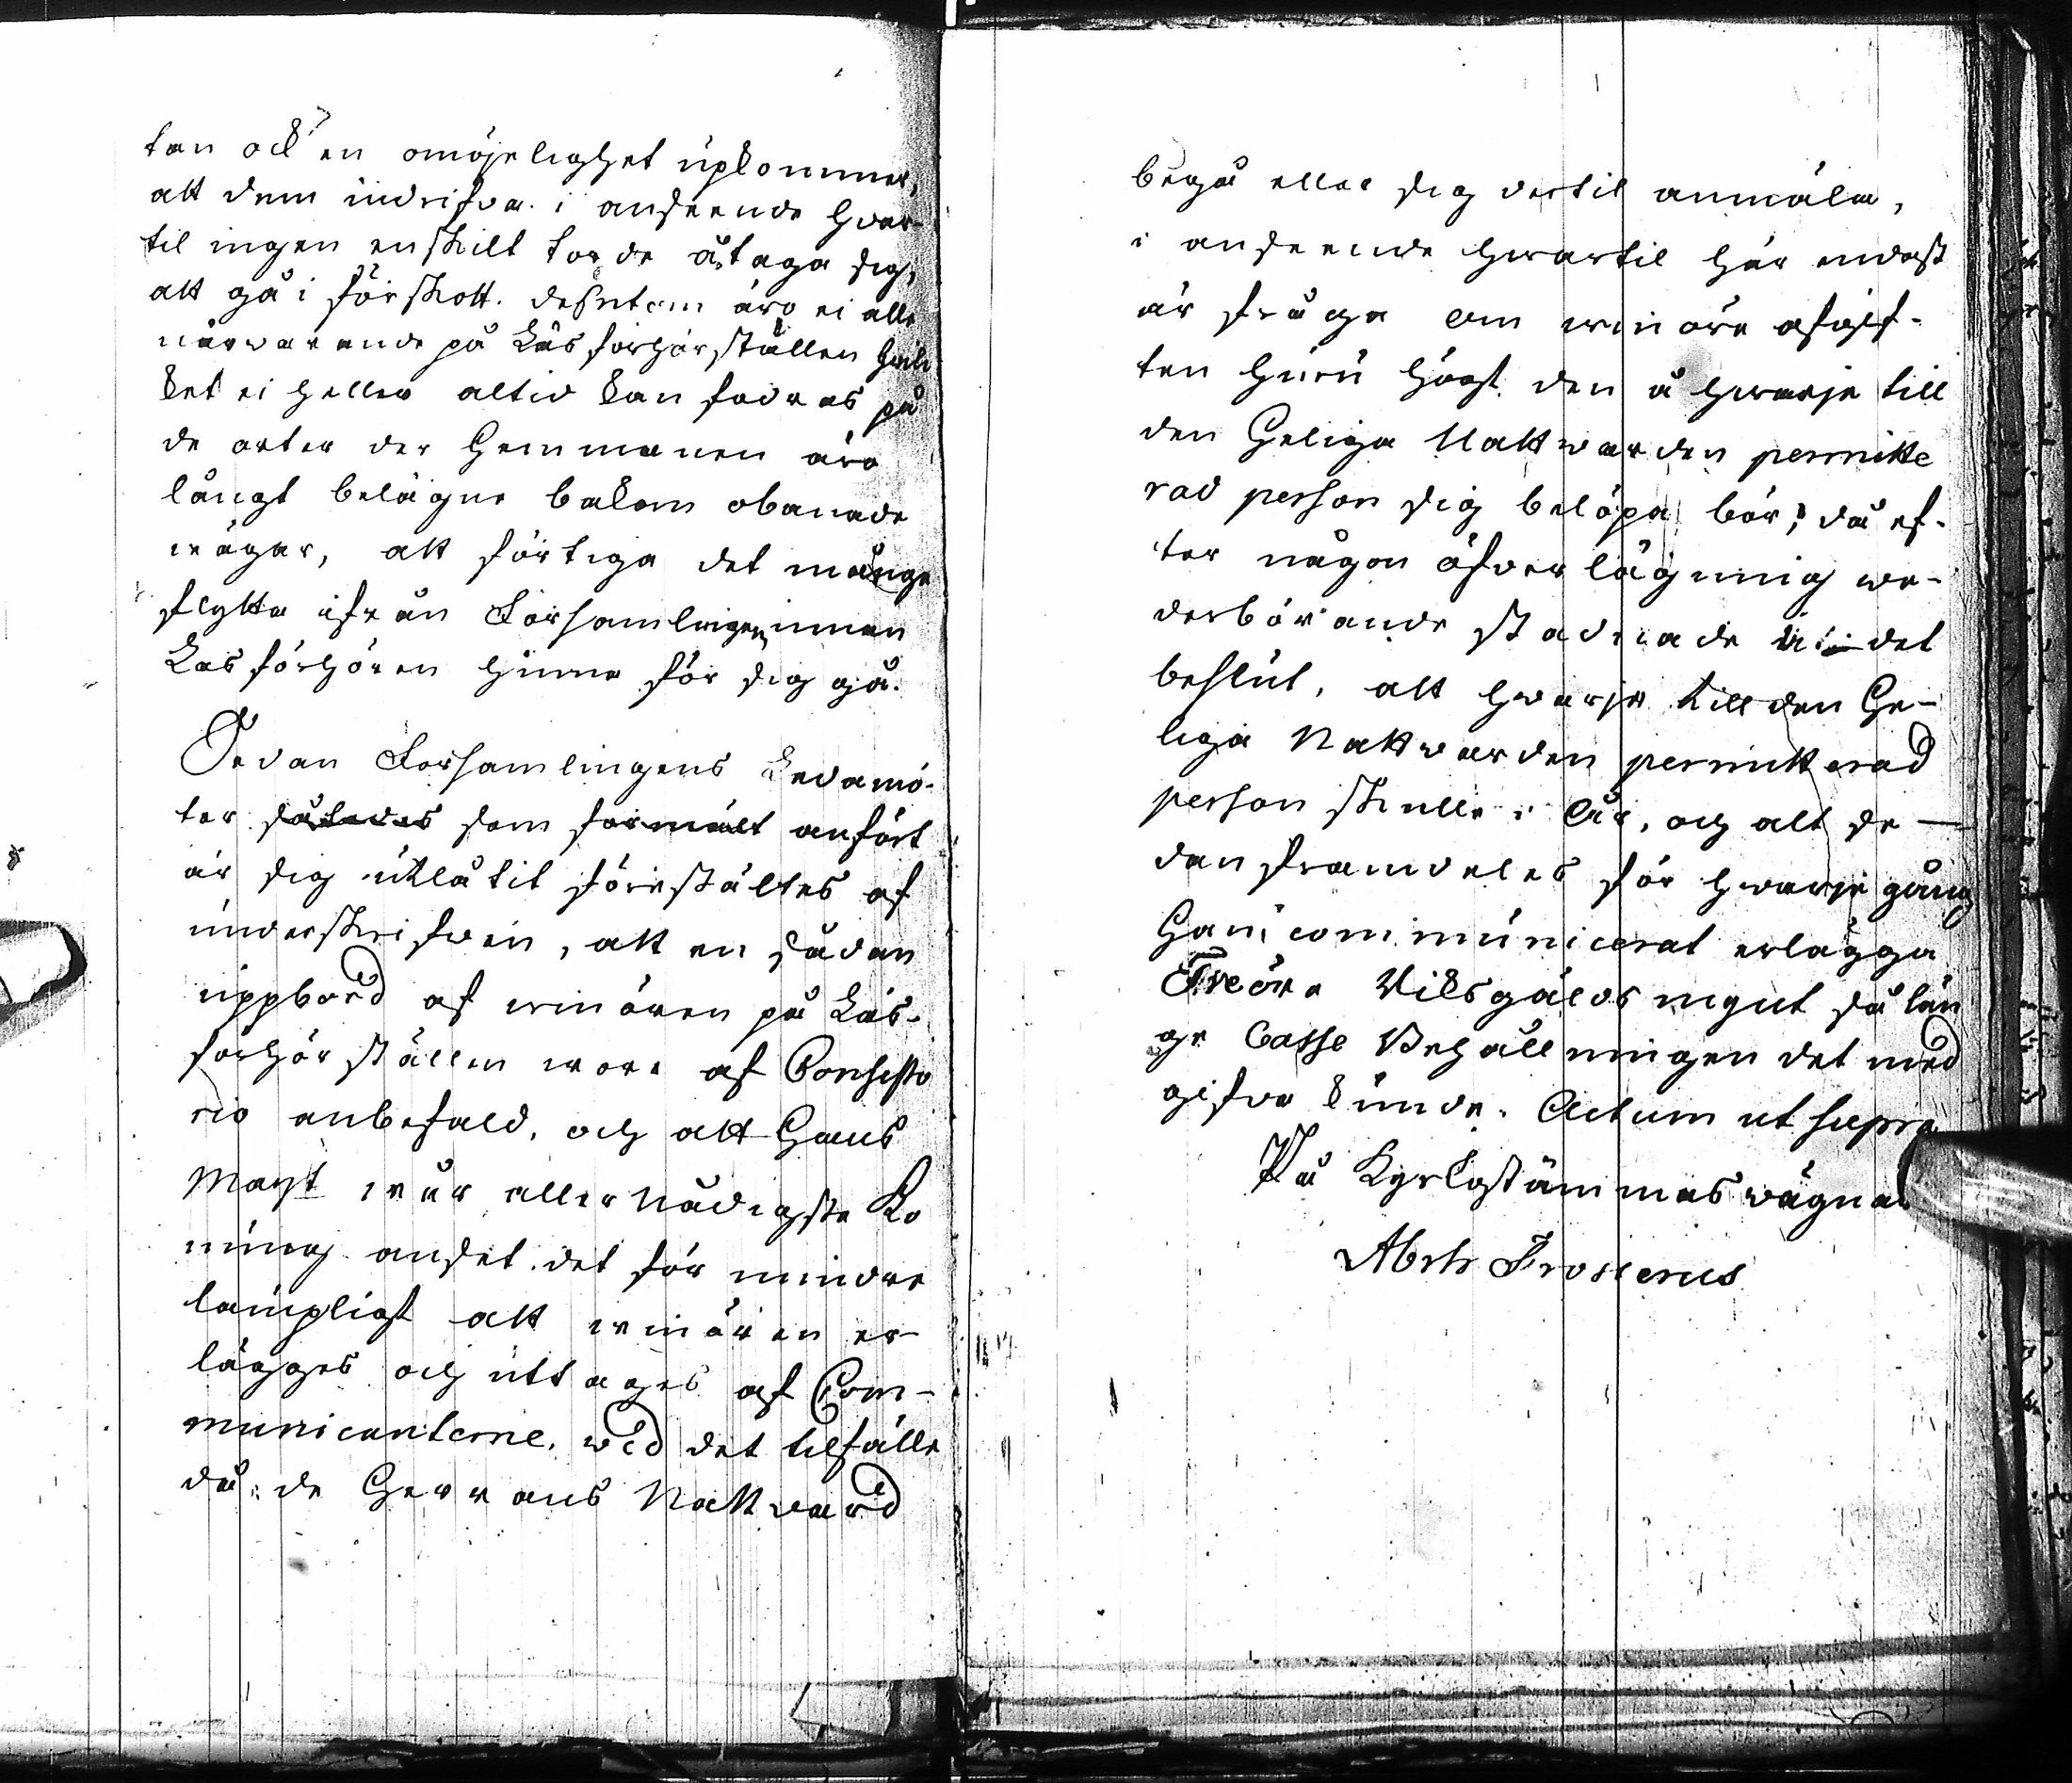 tan ock en omöjelighet upkommer,
att dem indrifva i anseende hvar-
til ingen enskilt torde åtaga sig,
att gå i förskott. desutom äro ei alle
närvarande på Läsförhörställen hvil-
ket ei heller altid kan fodras på
de orter der Hemmanen äro
långt belägne bakom obanade
vägar, att förtiga det månge
flytta ifrån Församlingen innan
Läsförhören hinna för sig gå.
Sedan Församlingens Ledamö-
ter således som förmält anfört
är sig utlåtit förestältes af
underskrifven, att en sådan
uppbörd af vinören på Läs-
förhörställen vore af Consisto
rio anbefald, och att Hans
Mayt vår allernådigste Ko
nung anset det för mindre
lämpligt att vinören er-
lägges och uttages af Com-
municanterne, wid det tilfälle
då de Herrans Nattvard
begå eller sig dertil anmäla,
i anseende hvartil här endast
är fråga om vinöre afgif-
ten huru högt den å hvarje till
den Heliga Nattvarden permitte
rad person sig belöpa bör; då ef-
ter någon öfverläggning ve-
derbörande stadnade i det
beslut, att hvarje till den He-
liga Nattvarden permitterad
person skulle i år, och alt se-
dan framdeles för hvarje gång
Han communicerat erlägga
Tre öre Riksgälds mynt så län
ge Casse Behållningen det med
gifva kunde. Actum ut supra
På Kyrkostämmas vägnar
Abrh Frosterus